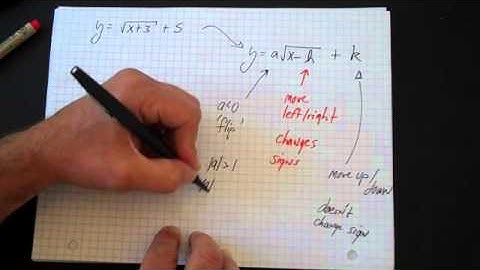 y = √x+3 + 5
y = a√x-h + k
a<0
'flip'
move
left/right
changes
signs
|a|>1
move up/
down
doesn't
change sign